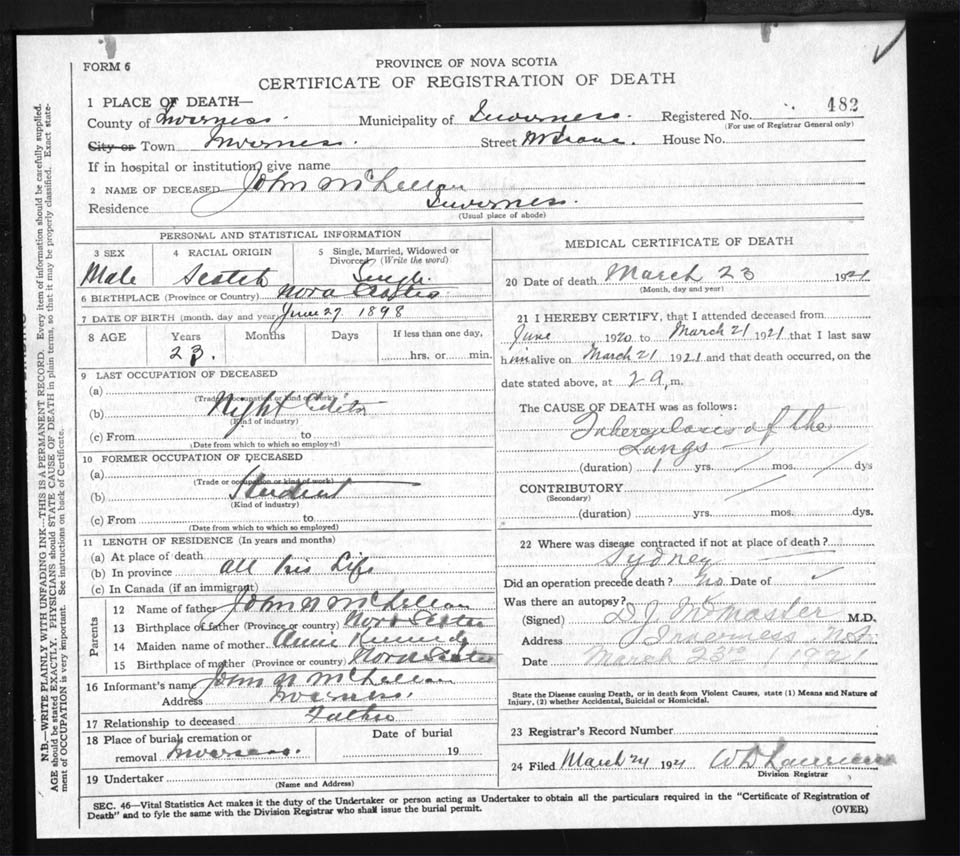 FORM 6
PROVINCE OF NOVA SCOTIA
CERTIFICATE OF REGISTRATION OF DEATH
1 PLACE OF DEATH—
County of Inverness. Municipality of Inverness. Registered No. 482
(For use of Registrar General only)
City or Town Inverness. Street House No.
If in hospital or institution, give name
2 NAME OF DECEASED John McLellan
Residence Inverness.
(Usual place of abode)
PERSONAL AND STATISTICAL INFORMATION
3 SEX 4 RACIAL ORIGIN 5 Single, Married, Widowed or Divorced (Write the word)
Male Scotch Single
6 BIRTHPLACE (Province or Country) Nova Scotia
7 DATE OF BIRTH (month, day and year) June 27 1898
8 AGE Years Months Days If less than one day,
23. hrs. or min.
9 LAST OCCUPATION OF DECEASED
(a)
(Trade or occupation or kind of work)
(b) Night Editor
(Kind of industry)
(c) From to
(Date from which to which so employed)
10 FORMER OCCUPATION OF DECEASED
(a)
(Trade or occupation or kind of work)
(b) Student
(Kind of industry)
(c) From to
(Date from which to which so employed)
11 LENGTH OF RESIDENCE (In years and months)
(a) At place of death
(b) In province all his Life
(c) In Canada (if an immigrant)
Parents
12 Name of father John N McLellan
13 Birthplace of father (Province or country) Nova Scotia
14 Maiden name of mother Annie Kennedy
15 Birthplace of mother (Province or country) Nova Scotia
16 Informant's name John N McLellan
Address Inverness.
17 Relationship to deceased Father
18 Place of burial, cremation or removal Inverness. Date of burial 19
19 Undertaker
(Name and Address)
MEDICAL CERTIFICATE OF DEATH
20 Date of death March 23 1921
(Month, day and year)
21 I HEREBY CERTIFY, that I attended deceased from
June 1920 to March 21 1921 that I last saw
him alive on March 21 1921 and that death occurred, on the
date stated above, at 2 a. m.
The CAUSE OF DEATH was as follows:
Tuberculosis of the
Lungs
(duration) 1 yrs. / mos. / dys
CONTRIBUTORY
(Secondary)
(duration) yrs. mos. dys.
22 Where was disease contracted if not at place of death?
Sydney
Did an operation precede death? No. Date of
Was there an autopsy?
(Signed) D. J. McMaster M.D.
Address Inverness N.S.
Date March 23rd 1921
State the Disease causing Death, or in death from Violent Causes, state (1) Means and Nature of
Injury, (2) whether Accidental, Suicidal or Homicidal.
23 Registrar's Record Number
24 Filed March 24 1921
Division Registrar
SEC. 46—Vital Statistics Act makes it the duty of the Undertaker or person acting as Undertaker to obtain all the particulars required in the "Certificate of Registration of
Death" and to fyle the same with the Division Registrar who shall issue the burial permit.
(OVER)
N.B.—WRITE PLAINLY WITH UNFADING INK—THIS IS A PERMANENT RECORD. Every item of information should be carefully supplied.
AGE should be stated EXACTLY. PHYSICIANS should STATE CAUSE OF DEATH in plain terms, so that it may be properly classified. Exact state-
ment of OCCUPATION is very important. See instructions on back of Certificate.